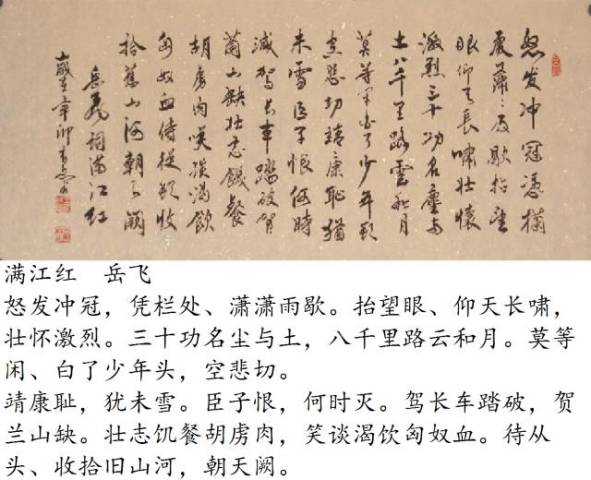 怒发冲冠憑欄
處蕭々雨歇抬望
眼仰天長嘯壯懷
激烈三十功名塵与
土八千里路雲和月
莫等闲白了少年頭
空悲切靖康恥猶
未雪臣子恨何時
滅駕長車踏破賀
蘭山缺壯志飢餐
胡虜肉笑談渴飲
匈奴血待從頭收
拾舊山河朝天闕
岳飛詞滿江红
辛卯
满江红 岳飞
怒发冲冠，凭栏处、潇潇雨歇。抬望眼、仰天长啸，
壮怀激烈。三十功名尘与土，八千里路云和月。莫等
闲、白了少年头，空悲切。
靖康耻，犹未雪。臣子恨，何时灭。驾长车踏破，贺
兰山缺。壮志饥餐胡虏肉，笑谈渴饮匈奴血。待从
头、收拾旧山河，朝天阙。